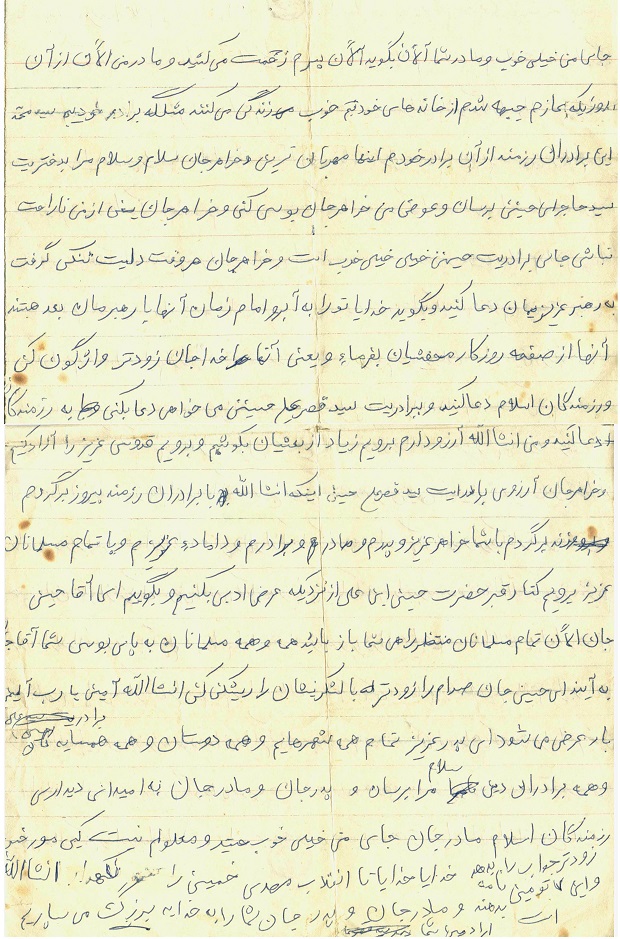 جای من خیلی خوب و مادر شما الان بگوید الان پسرم زحمت می کشید و مادر من الان از آن
روزیکه عازم جبهه شدم از خانه های خودتم خوب زندگی می کنند مثلکه برادر خودیم
این برادران رزمنده از آن برادر خودم اینها مهربان ترین و خواهر جان سلام و سلام مرا بدختریت
سید هاجرای حسینی برسان و عوض من خواهر جان بوسی کنی و خواهر جان یعنی از من ناراحت
نباشی جای برادریت حسینی خیلی خیلی خوب است و خواهر جان هر وقت دلیت تنگی گرفت
به رهبر عزیزیمان دعا کنید و بگوید خدایا تو را به آبرو امام زمان آنها با رهبرمان بعد هستند
آنها از صفحه روزگار محفشیان بفرماء و یعنی آنها خدا جان زودتر واژگون کن
و رزمندگان اسلام دعا کنید و برادریت سید قصر علی حسینی می خواهی دعا بکنی به رزمندگان
دعا کنید و من انشاالله آرزو دارم برویم زیاد از بعثیان بکوشیم و برویم قدوس عزیز را آزاد کنیم
و خواهر جان آرزوی برادرایت سید قصر علی حسینی اینکه انشاالله با برادران رزمنده پیروز برگردم
برگردم با شما خواهر عزیز و پدرم و مادرم و برادرم و داماد عزیزم و با تمام مسلمانان
عزیز برویم کنار قبر حضرت حسین ابن علی از نزدیکه عرض ادبی بکنیم و بگوییم ای آقا حسینی
جان الان تمام مسلمانان منتظر راهی شما باز بایند همه و همه مسلمانان به پای بوسی شما آقا
به آیند ای حسینی جان صدام را زودتر با لشکریشان را ریشکنی کنی انشاالله آمین یا رب
برادر
بار عرض می شود ای پدر عزیز تمام هم شهرهایم و همه دوستان و همه همسایه
سلام
و همه برادران دینی مرا برسان و پدر جان و مادر جان به امیدانی دیداری
رزمندگان اسلام مادر جان جای من خیلی خوب هستید و معلوم نیست کی مورخو
زودتر جواب را بدهد خدایا خدایا تا انقلاب مهدی خمینی را نگهدار انشاالله
و این نامه بدهند و مادر جان و پدر جان شما را به خدایه بزرگ می سپاریم
است